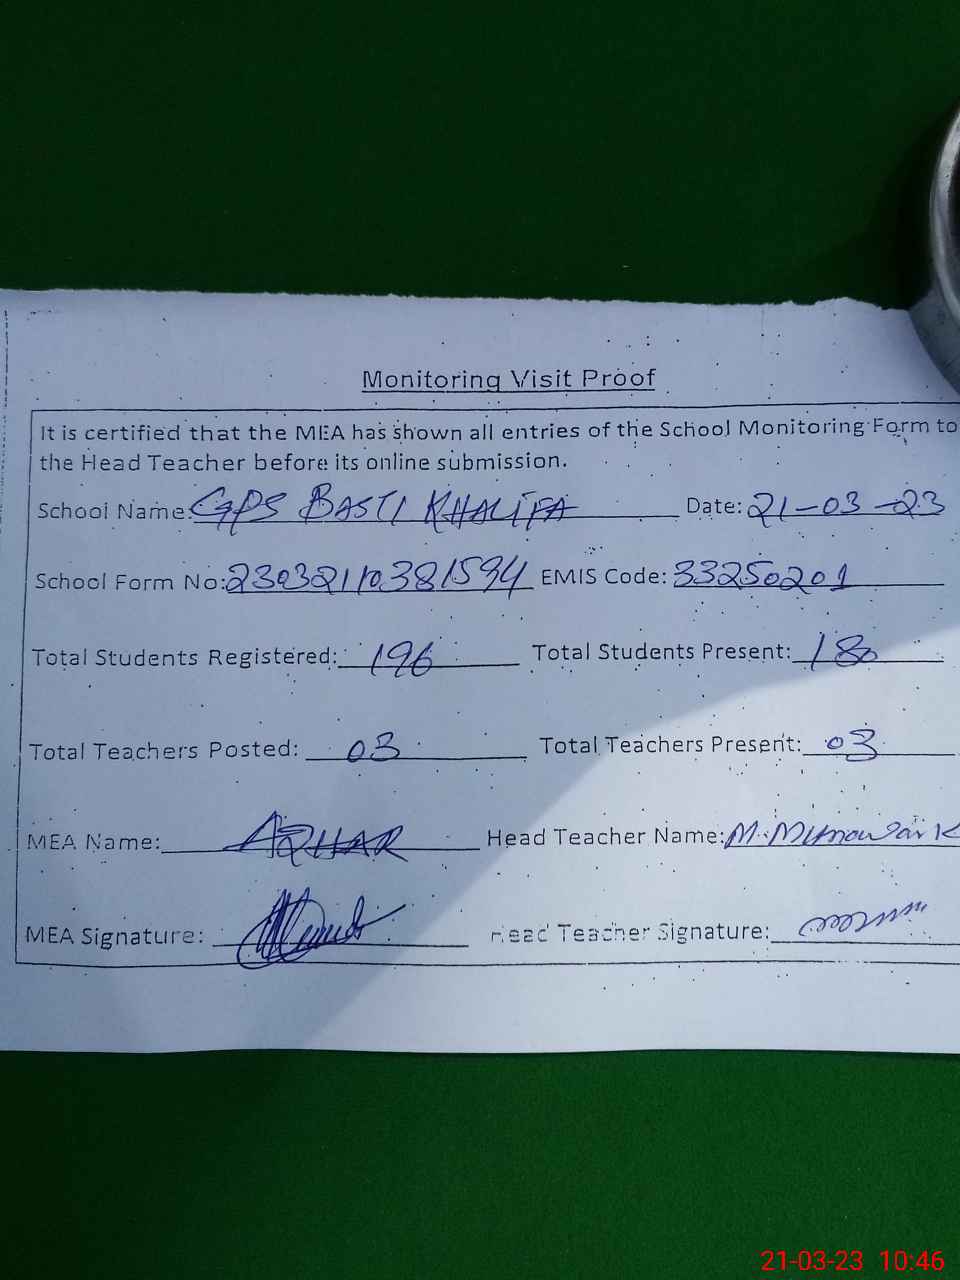 Monitoring Visit Proof
It is certified that the MEA has shown all entries of the School Monitoring Form to
the Head Teacher before its online submission.
School Name: GPS BASTI KHALIFA Date: 21-03-23
School Form No: 23032110381594 EMIS Code: 33250201
Total Students Registered: 196 Total Students Present: 180
Total Teachers Posted: 03 Total Teachers Present: 03
MEA Name: AZHAR Head Teacher Name: M.
MEA Signature: Head Teacher Signature:
21-03-23 10:46